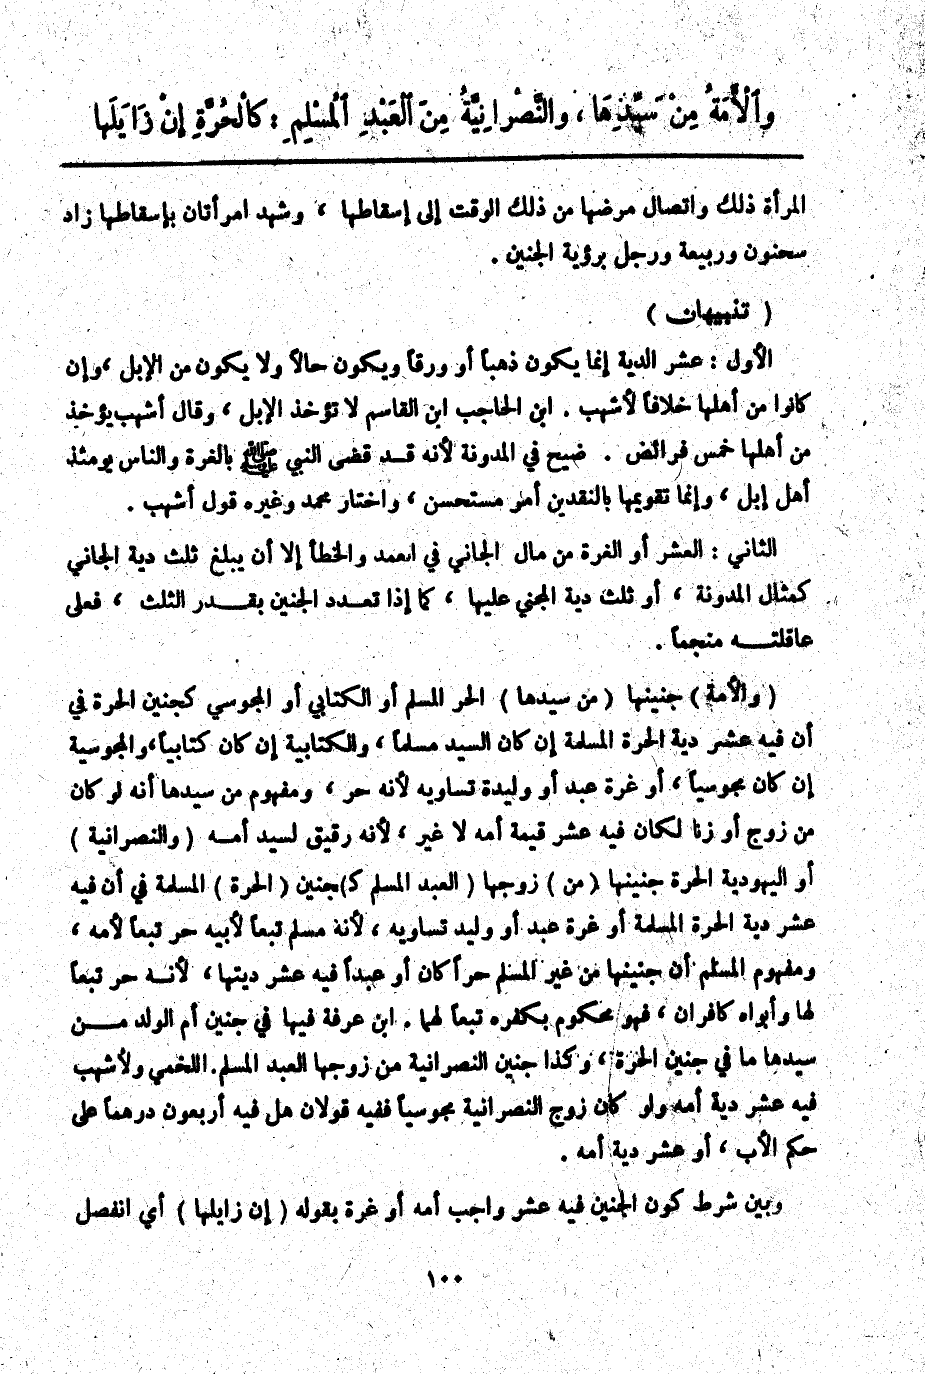 وَٱلْأَمَةُ مِنْ سَيِّدِهَا ، والنَّصْرانِيَّةُ مِنَ ٱلْعَبْدِ ٱلْمُسْلِمِ : كالْحُرَّةِ إنْ زَايَلَها
المرأة ذلك واتصال مرضها من ذلك الوقت إلى إسقاطها ، وشهد امرأتان بإسقاطها زاد
سحنون وربيعة ورجل برؤية الجنين .
( تنبيهات )
الأول : عشر الدية إنما يكون ذهباً أو ورقاً ويكون حالاً ولا يكون من الإبل ، وإن
كانوا من أهلها خلافاً لأشهب . ابن الحاجب ابن القاسم لا تؤخذ الإبل ، وقال أشهب يؤخذ
من أهلها خمس فرائض . ضيح في المدونة لأنه قــد قضى النبي ﷺ بالغرة والناس يومئذ
أهل إبل ، وإنما تقويمها بالنقدين أمر مستحسن ، واختار محمد وغيره قول أشهب .
الثاني : العشر أو الغرة من مال الجاني في العمد والخطأ إلا أن يبلغ ثلث دية الجاني
كمثال المدونة ، أو ثلث دية المجني عليها ، كما إذا تعــدد الجنين بقــــدر الثلث ، فعلى
عاقلتــــه منجماً .
( والأمة ) جنينها ( من سيدها ) الحر المسلم أو الكتابي أو المجوسي كجنين الحرة في
أن فيه عشر دية الحرة المسلمة إن كان السيد مسلماً ، والكتابية إن كان كتابياً ، والمجوسية
إن كان مجوسياً ، أو غرة عبد أو وليدة تساويه لأنه حر ، ومفهوم من سيدها أنه لو كان
من زوج أو زنا لكان فيه عشر قيمة أمه لا غير ، لأنه رقيق لسيد أمــه ( والنصرانية )
أو اليهودية الحرة جنينها ( من ) زوجها ( العبد المسلم كـ)جنين ( الحرة ) المسلمة في أن فيه
عشر دية الحرة المسلمة أو غرة عبد أو وليد تساويه ، لأنه مسلم تبعاً لأبيه حر تبعاً لأمه ،
ومفهوم المسلم أن جنينها من غير المسلم حراً كان أو عبداً فيه عشر ديتها ، لأنــه حر تبعاً
لها وأبواه كافران ، فهو محكوم بكفره تبعاً لهما . ابن عرفة فيها في جنين أم الولد مــــن
سيدها ما في جنين الحرة ، وكذا جنين النصرانية من زوجها العبد المسلم. اللخمي ولأشهب
فيه عشر دية أمه ولو كان زوج النصرانية مجوسياً ففيه قولان هل فيه أربعون درهماً على
حكم الأب ، أو عشر دية أمه .
وبين شرط كون الجنين فيه عشر واجب أمه أو غرة بقوله ( إن زايلها ) أي انفصل
١٠٠